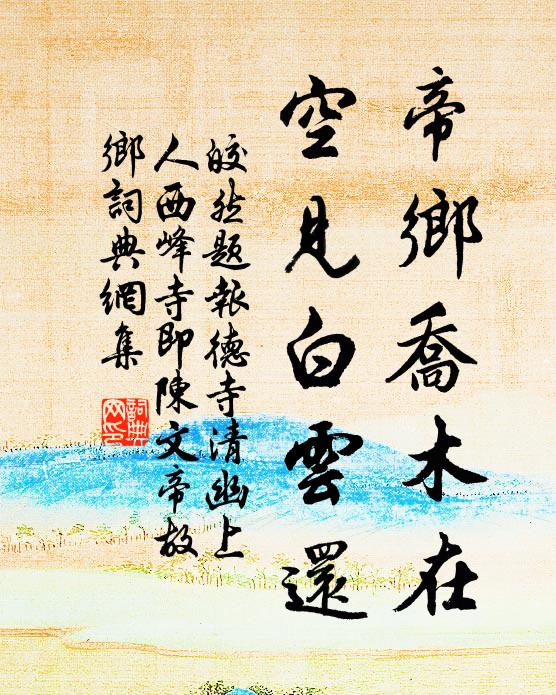 帝鄉喬木在
空見白雲還
皎然題報德寺清幽上
人西峰寺即陳文帝故
鄉詞典網集
詞典網印